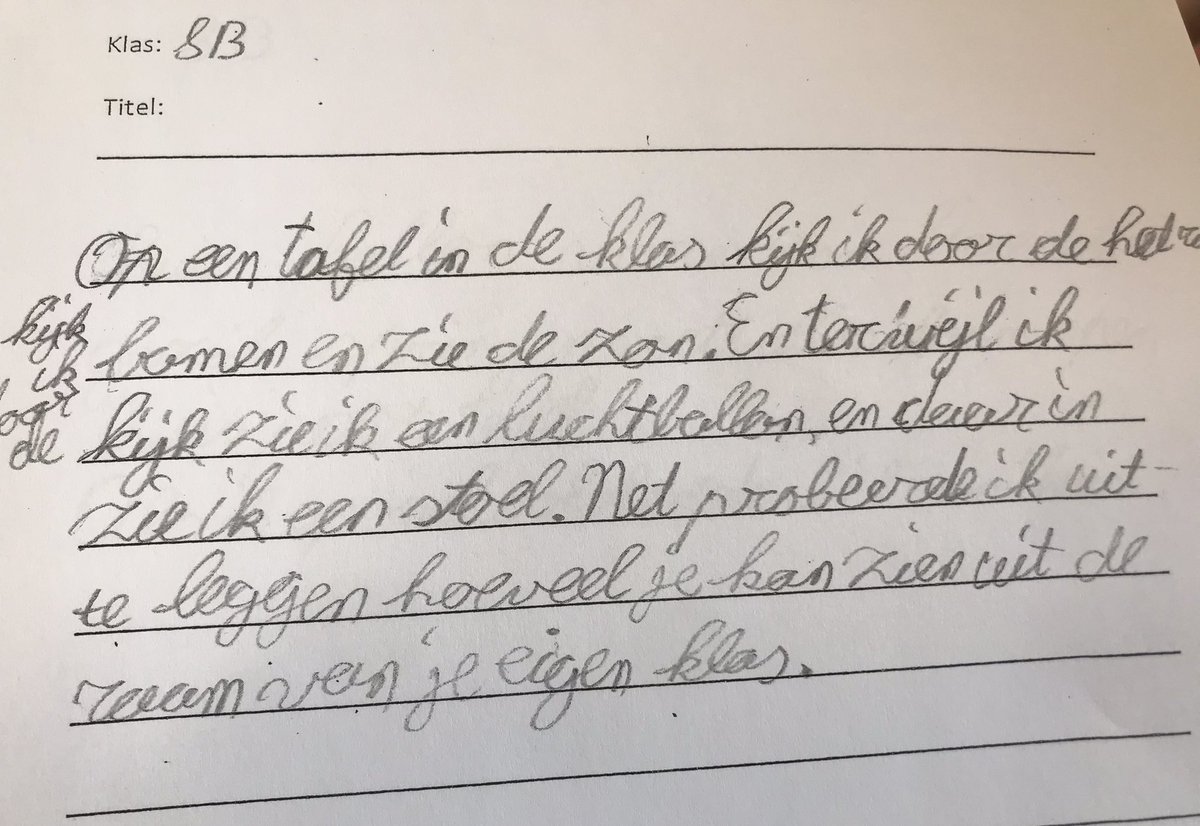 Klas: 8B
Titel:
Op een tafel in de klas kijk ik door de het
bomen en zie de zon. En terwijl ik
kijk zie ik een luchtballon, en daar in
zie ik een stoel. Net probeerde ik uit-
te leggen hoeveel je kan zien uit de
raam van je eigen klas.
kijk
ik
de